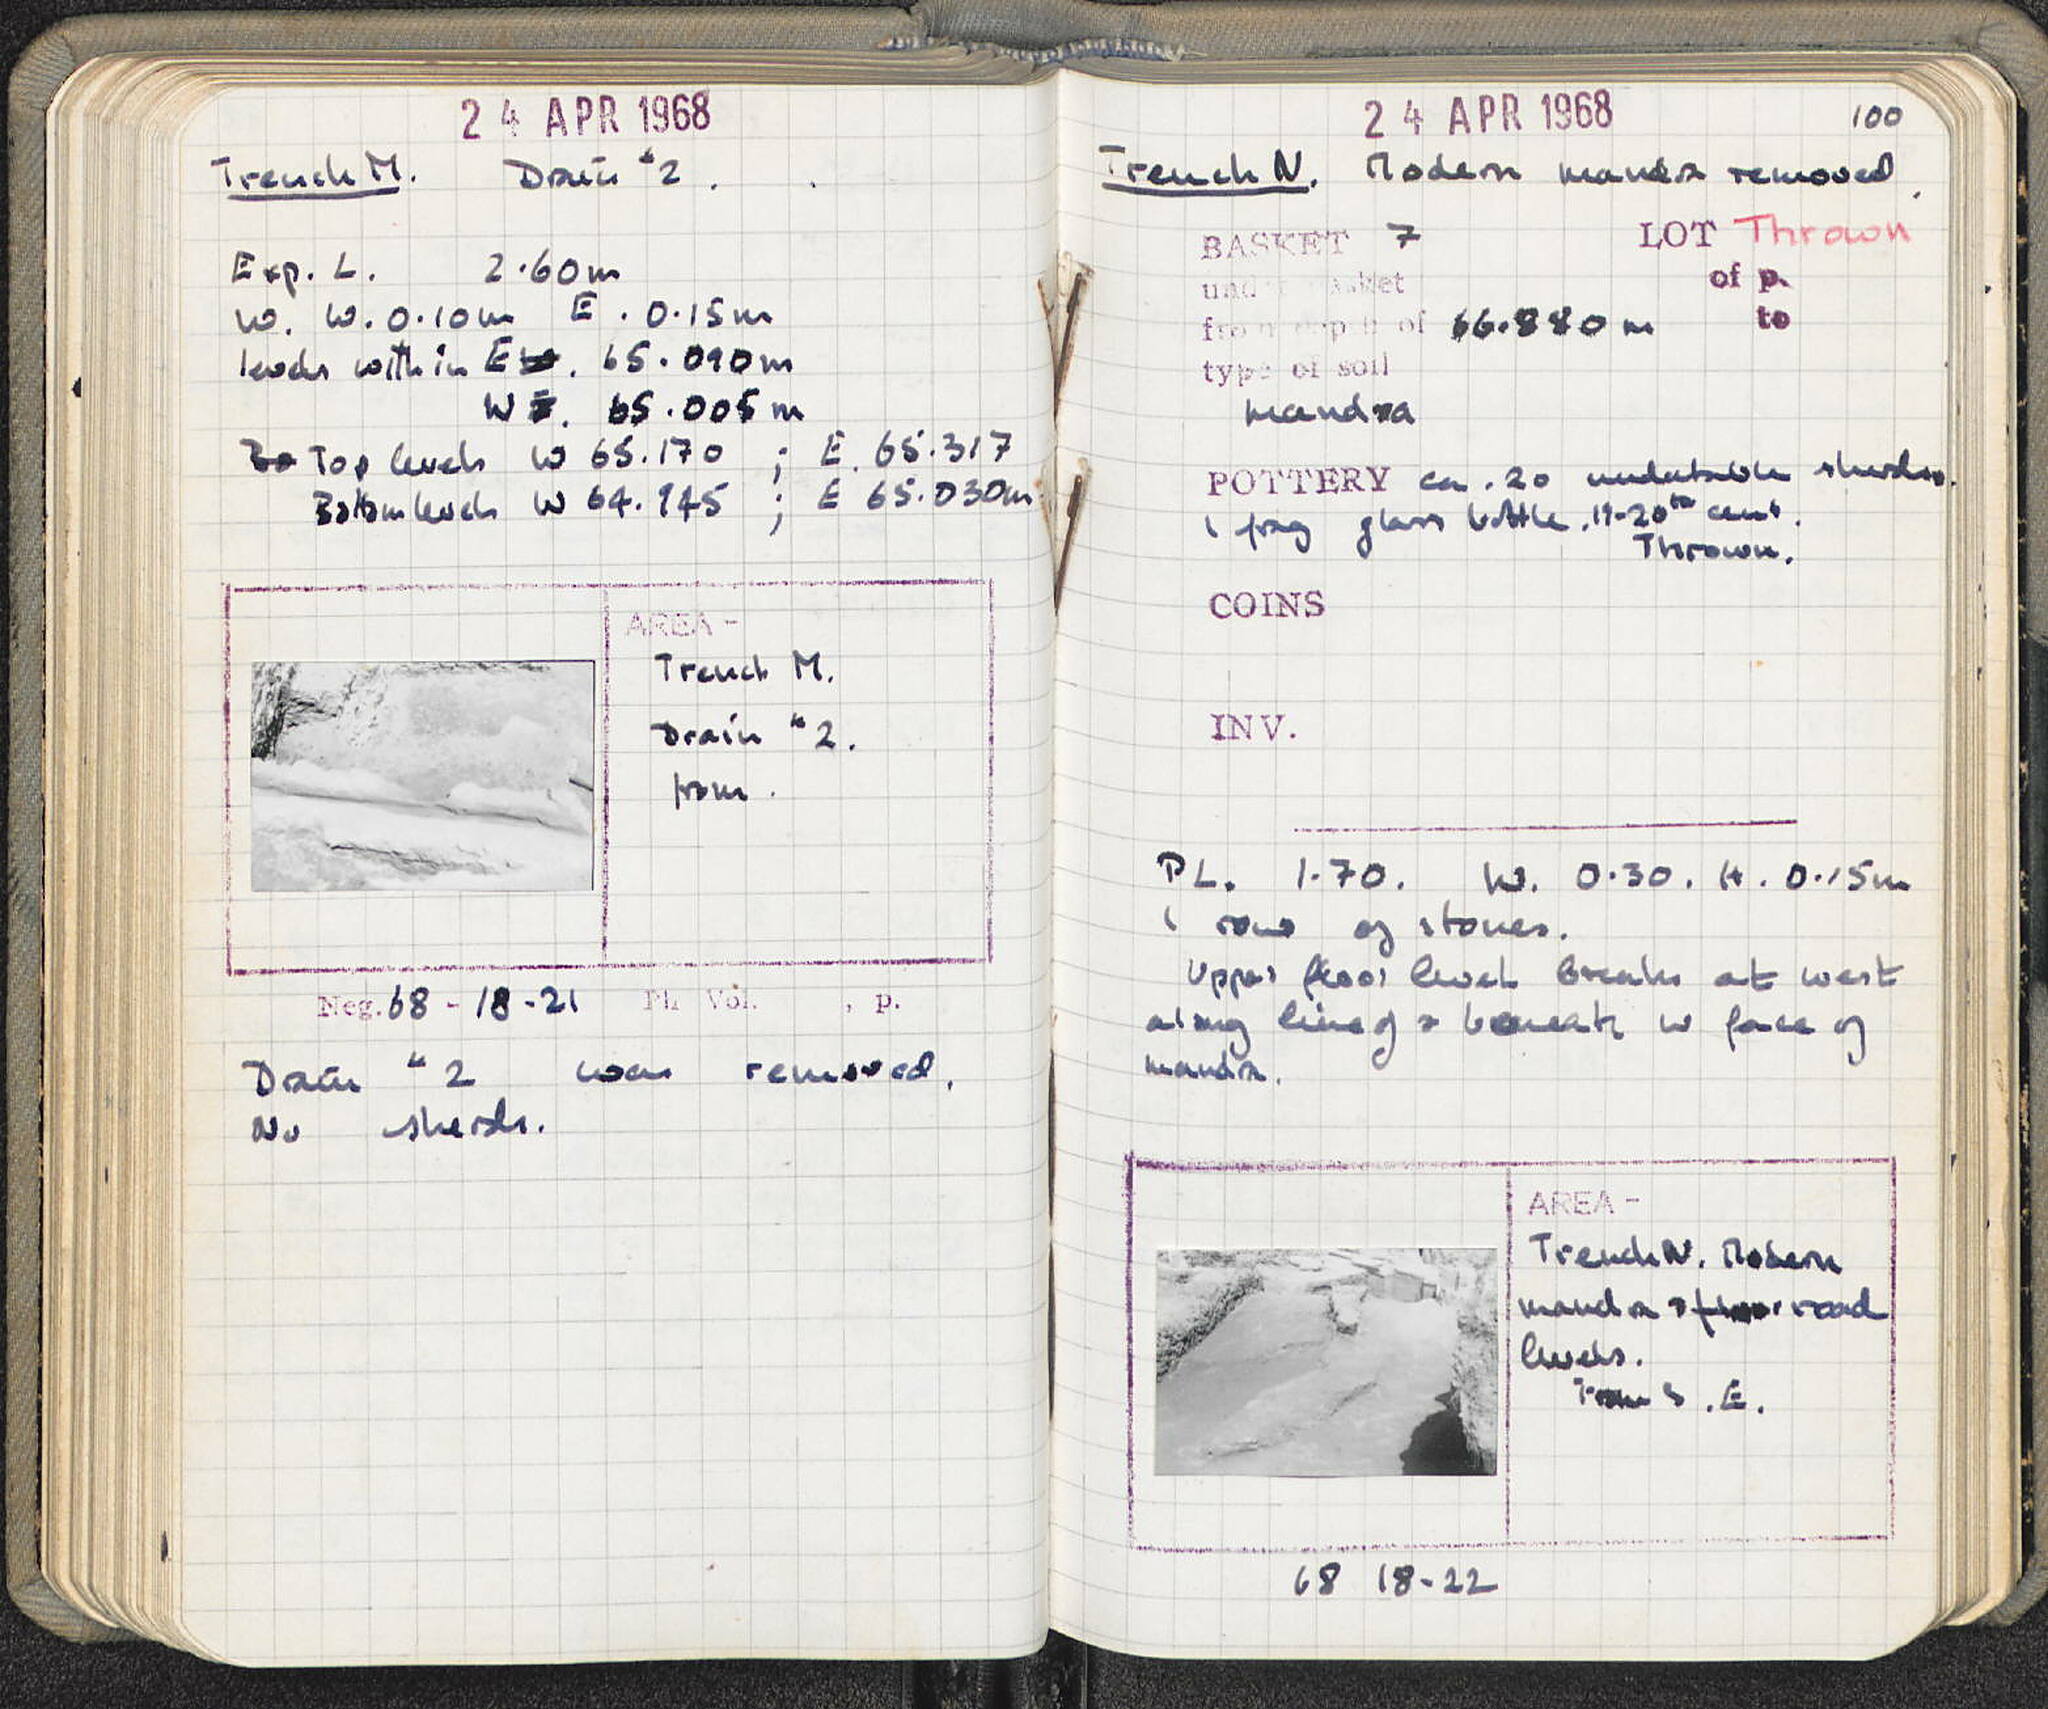 24 APR 1968
Trench M. Drain #2.
Exp. L. 2.60m
W. W. 0.10m E. 0.15m
levels within E. 65.090m
W. 65.005m
Top levels W 65.170 ; E. 65.317
Bottom levels W 64.945 ; E 65.030m
AREA -
Trench M.
Drain #2.
from.
Neg. 68 - 18 - 21 Ph Vol. , p.
Drain #2 was removed.
No sherds.
24 APR 1968 100
Trench N. Modern mandra removed.
BASKET 7 LOT Thrown
under basket of p.
from depth of 66.880 m to
type of soil
mandra
POTTERY ca. 20 undatable sherds.
1 frag glass bottle. 19-20th cent.
Thrown.
COINS
INV.
PL. 1.70. W. 0.30. H. 0.15m
1 row of stones.
Upper floor level breaks at west
along line of & beneath W face of
mandra.
AREA -
Trench N. Modern
mandra & floor road
levels.
From S.E.
68 18-22